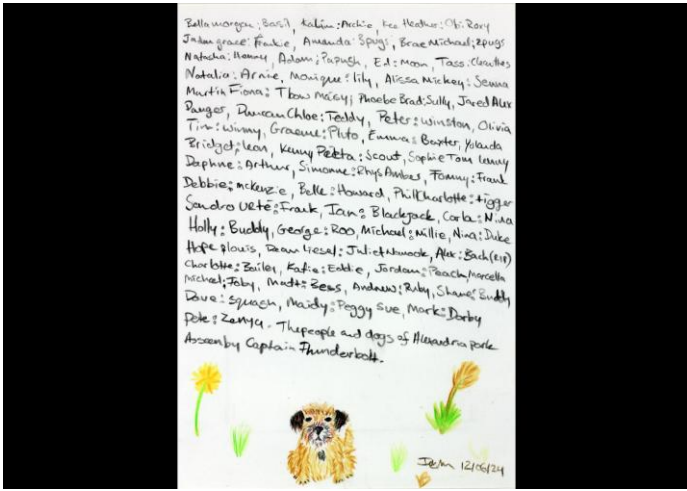 Bella morgan: Basil, Kalim: Archie, Kee Heather: Obi: Rory
Jadungrace: Frankie, Amanda: 3pugs, Brae Michael: 2pugs
Natasha: Hommy, Adam; Papush, Ed: Moon, Tass: Cleanthes
Natalia: Arnie, Monique: Lily, Alissa Mickey: Senna
Martin Fiona: Tbow Maisy; Phoebe Brad: Sully, Jared Alex
Danger, Duncan Chloe: Teddy, Peter: Winston, Olivia
Tim: Winny, Graeme: Pluto, Emma: Baxter, Yolanda
Bridget: Leon, Kenny Pekta: Scout, Sophie Tom Lenny
Daphne: Arthur, Simonne: Rhys Amber, Tommy: Frank
Debbie: mckenzie, Belle: Howard, Phill Charlotte: tigger
Sandro Urte: Frank, Ian: Blackjack, Carla: Nina
Holly: Buddy, George: Roo, Michael: Millie, Nina: Duke
Hope: Louis, Dean Liesel: Juliet Nanook, Alex: Bach (RIP)
Charlotte: Bailey, Katie: Eddie, Jordan: Peach, Marcella
Michael: Toby, Matt: Bess, Andrew: Ruby, Shane: Buddy
Dave: Squash, Maidy: Peggy Sue, Mark: Darby
Pete: Zenya. The people and dogs of Alexandria park
Assembly Captain Thunderbolt.
12/06/24